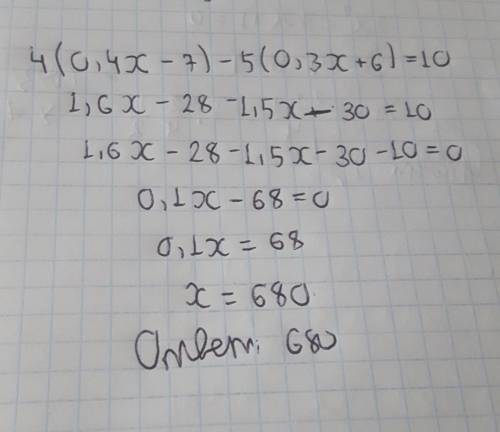 4(0,4x - 7) - 5(0,3x + 6) = 10
1,6x - 28 - 1,5x - 30 = 10
1,6x - 28 - 1,5x - 30 - 10 = 0
0,1x - 68 = 0
0,1x = 68
x = 680
Ответ: 680